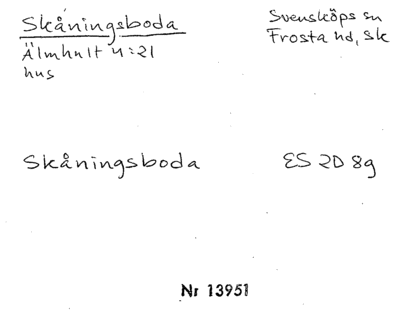 Skåningsboda
Svensköps sn
Älmhult 4:21
Frosta hd, Sk
hus
Skåningsboda
ES 2D 8g
Nr 13951